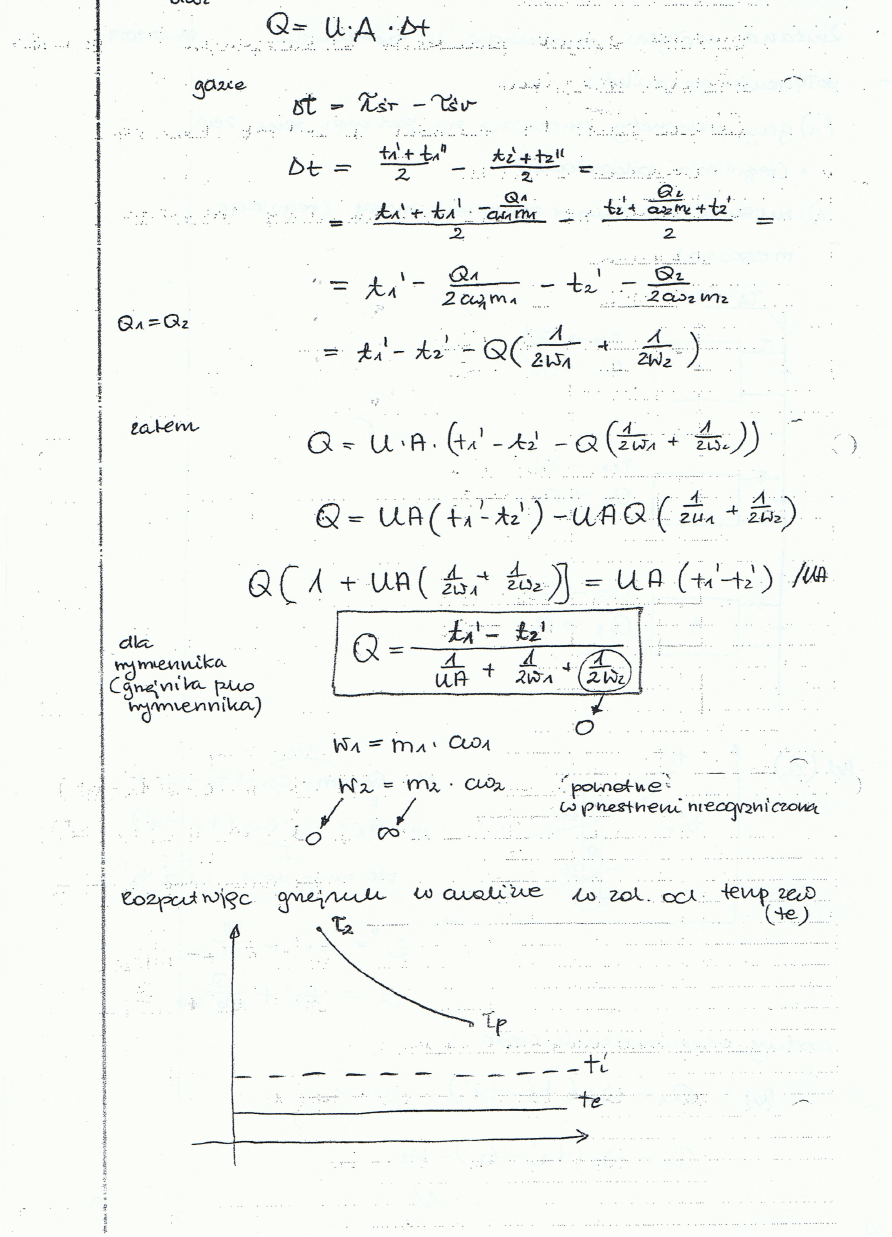 Q = U·A·Δt
gdzie
Δt = τśr - τśv
Δt = (t1' + t1'')/2 - (t2' + t2'')/2 =
= (t1' + t1' - Q1/(cw1m1))/2 - (t2' + Q2/(cw2m2) + t2')/2 =
= t1' - Q1/(2cw1m1) - t2' - Q2/(2cw2m2)
Q1=Q2
= t1' - t2' - Q(1/2W1 + 1/2W2)
zatem
Q = U·A·(t1' - t2' - Q(1/2W1 + 1/2W2))
Q = UA(t1' - t2') - UAQ(1/2W1 + 1/2W2)
Q[1 + UA(1/2W1 + 1/2W2)] = UA(t1' - t2') /UA
dla
wymiennika
(grzejnika
wymiennika)
Q = (t1' - t2')/(1/UA + 1/2W1 + 1/2W2)
0
W1 = m1·cw1
W2 = m2·cw2
0 ∞
"powietrze"
w przestrzeni nieograniczona
Rozpatrując grzejnik w analize w zal. od temp zew
(te)
τz
τp
ti
te